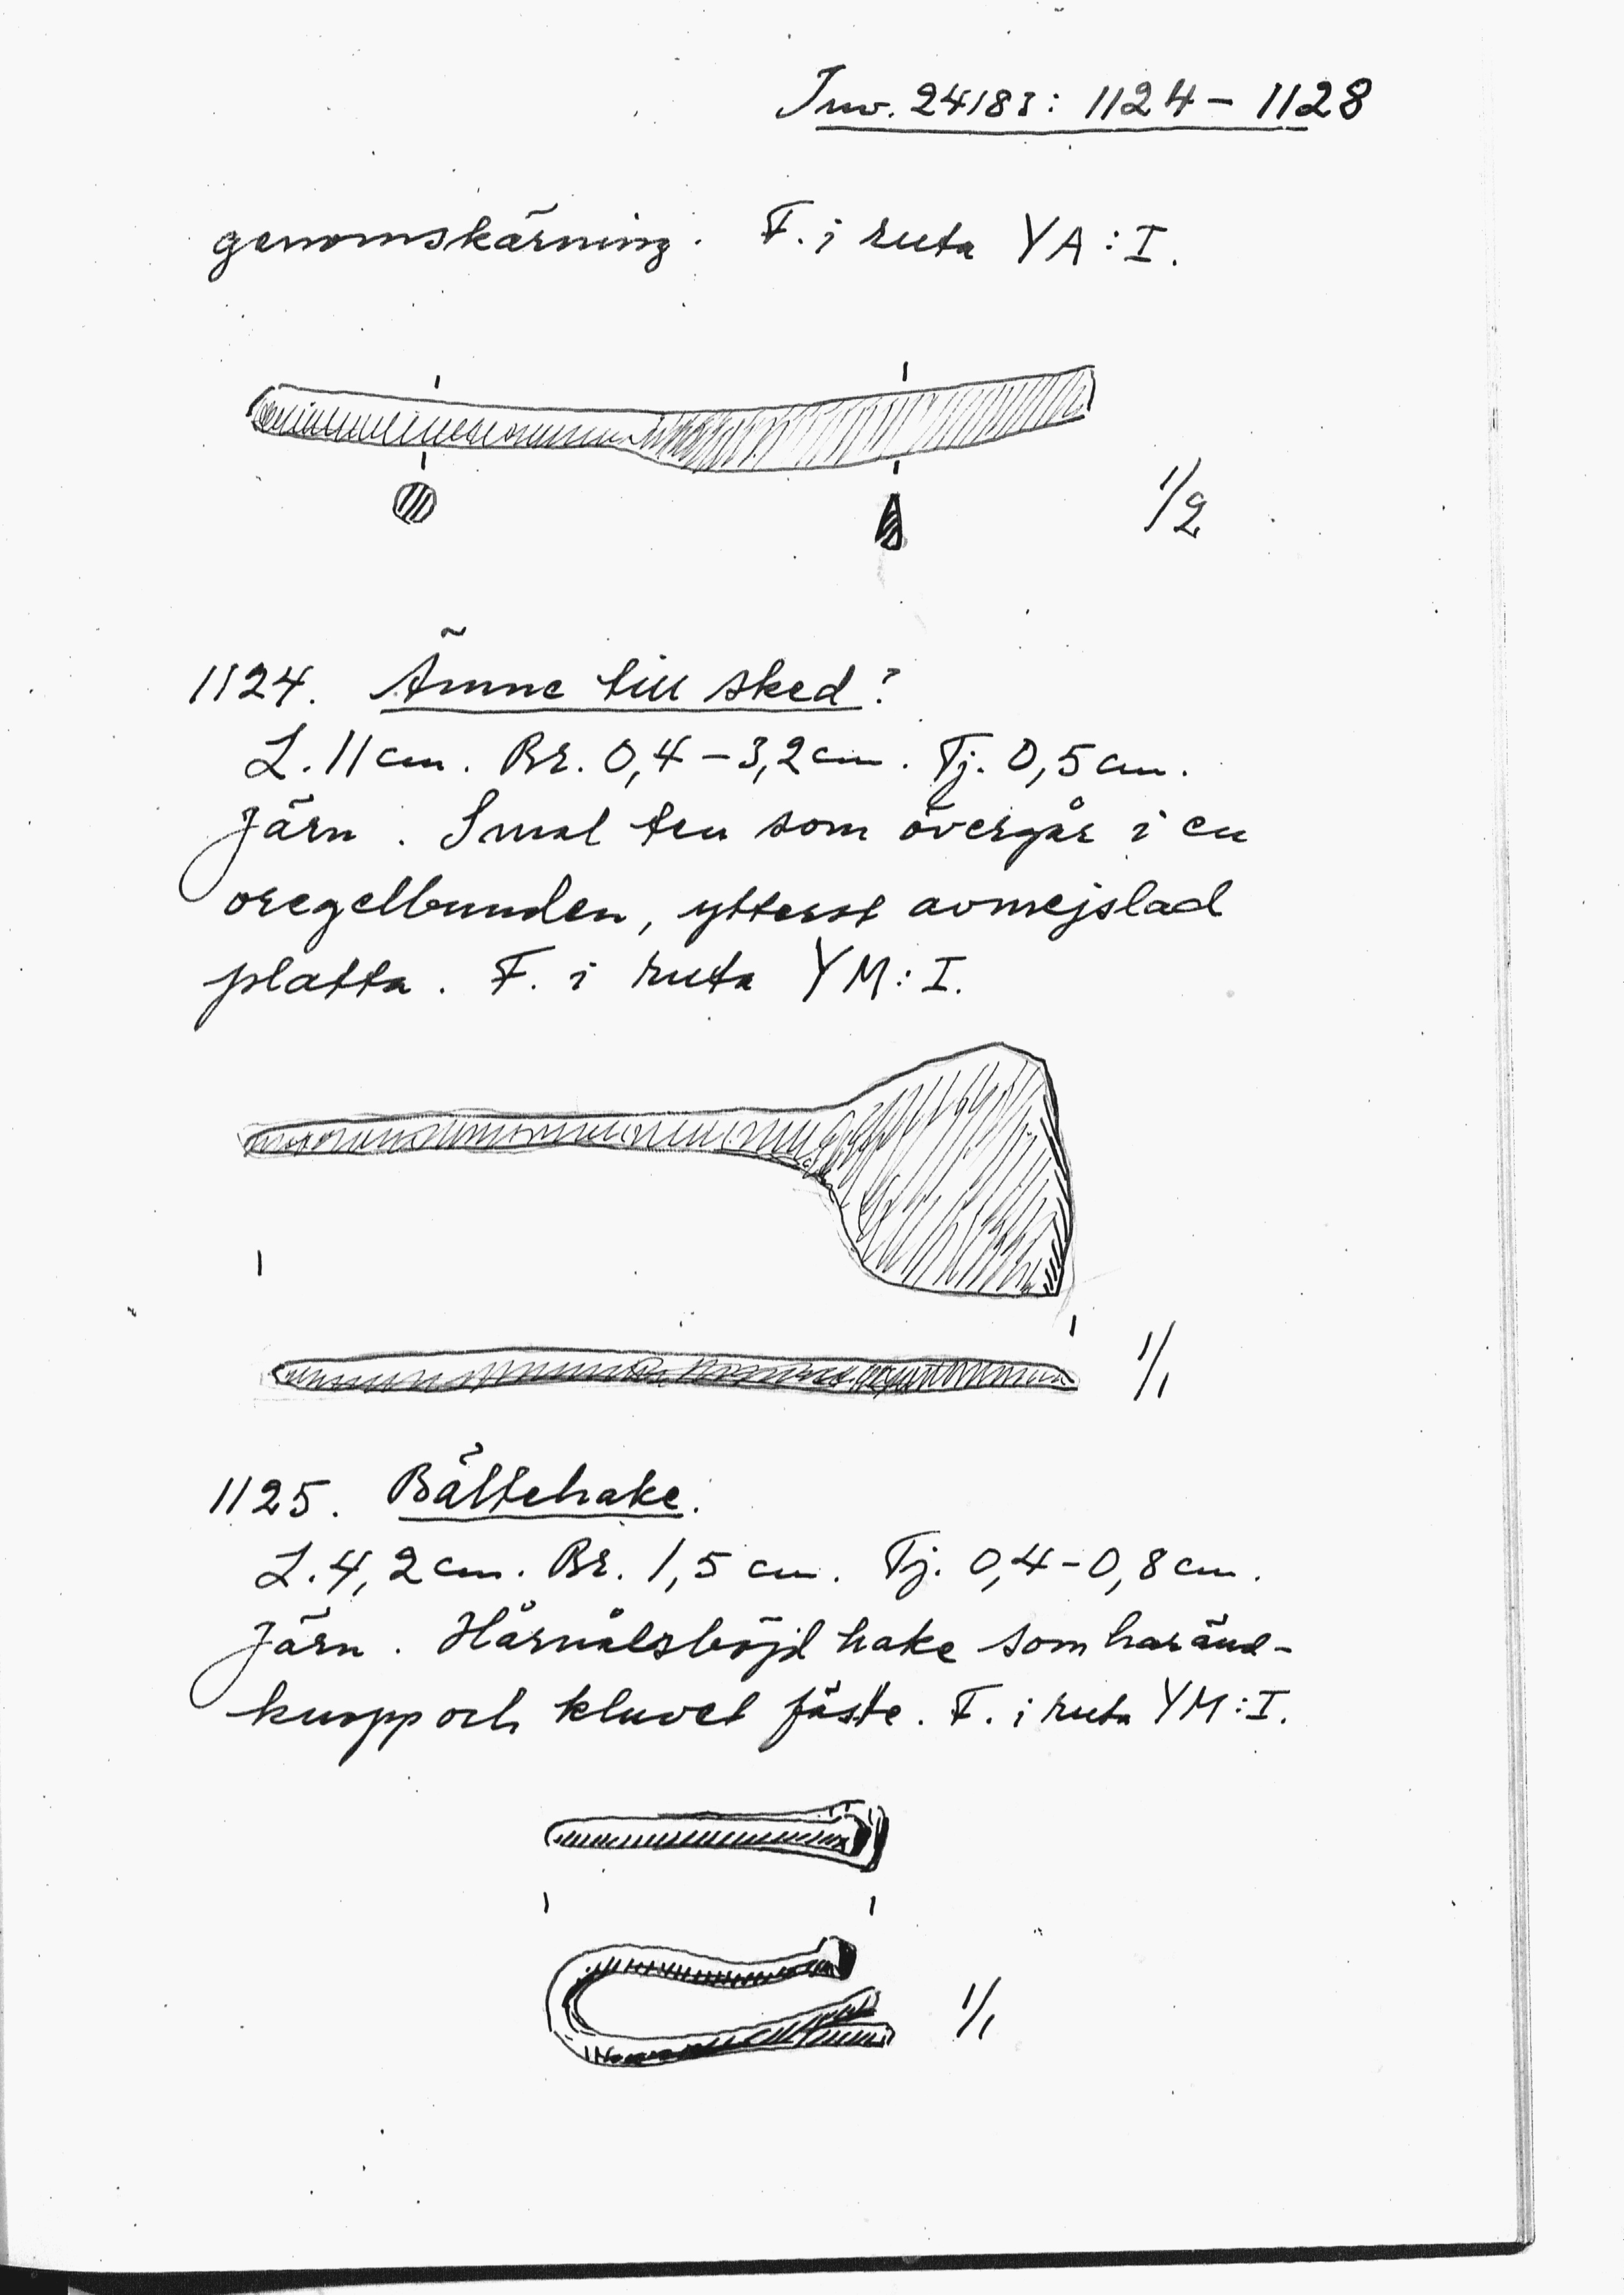 Inv. 24183: 1124 – 1128
genomskärning. F. i ruta YA:I.
1/2
1124. Ämne till sked?
L. 11 cm. Br. 0,4 – 3,2 cm. Tj. 0,5 cm.
Järn. Smal ten som övergår i en
oregelbunden, ytterst avmejslad
platta. F. i ruta YM:I.
1/1
1125. Bältehake.
L. 4,2 cm. Br. 1,5 cm. Tj. 0,4 – 0,8 cm.
Järn. Hårnålsböjd hake som har änd-
knopp och kluvet fäste. F. i ruta YM:I.
1/1